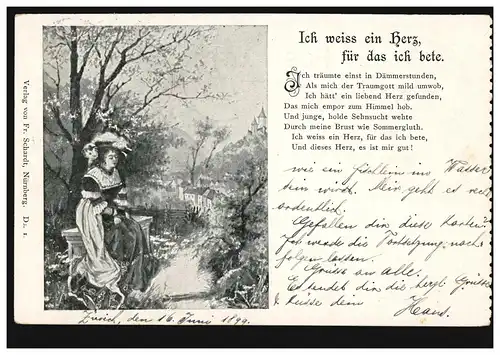 Ich weiss ein Herz,
für das ich bete.
Ich träumte einst in Dämmerstunden,
Als mich der Traumgott mild umwob,
Ich hätt' ein liebend Herz gefunden,
Das mich empor zum Himmel hob.
Und junge, holde Sehnsucht wehte
Durch meine Brust wie Sommergluth.
Ich weiss ein Herz, für das ich bete,
Und dieses Herz, es ist mir gut!
wie ein Fischlein im Wasser
sein wird. Mir geht es recht
ordentlich.
Gefallen dir diese Karten?
Ich werde die Fortsetzung nach-
folgen lassen.
Grüsse an Alle.
Es sendet dir die herzl. Grüsse
& Küsse dein Hans.
Zürich, den 16. Juni 1899.
Verlag von Fr. Schardt, Nürnberg. D. 1.